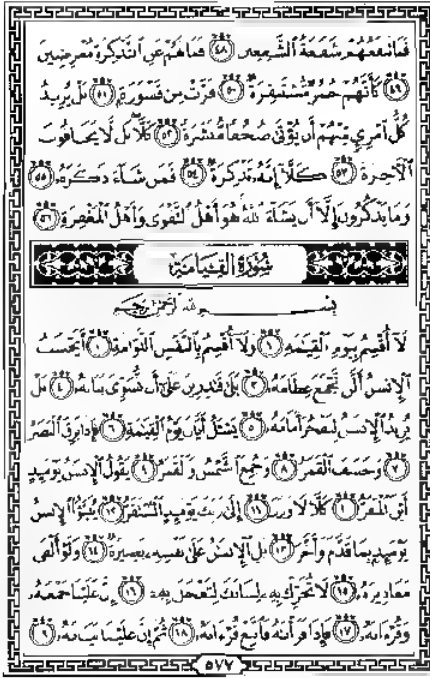 فَمَا نَنفَعُهُمْ شَفَعَةُ الشَّفِعِينَ ٤٨ فَمَا لَهُمْ عَنِ التَّذْكِرَةِ مُعْرِضِينَ
٤٩ كَأَنَّهُمْ حُمُرٌ مُّسْتَنفِرَةٌ ٥٠ فَرَّتْ مِن قَسْوَرَةٍ ٥١ بَلْ يُرِيدُ
كُلُّ امْرِئٍ مِّنْهُمْ أَن يُؤْتَى صُحُفًا مُّنَشَّرَةً ٥٢ كَلَّا بَل لَّا يَخَافُونَ
الْآخِرَةَ ٥٣ كَلَّا إِنَّهُ تَذْكِرَةٌ ٥٤ فَمَن شَاءَ ذَكَرَهُ ٥٥
وَمَا يَذْكُرُونَ إِلَّا أَن يَشَاءَ اللَّهُ هُوَ أَهْلُ التَّقْوَى وَأَهْلُ الْمَغْفِرَةِ ٥٦
سُورَةُ الْقِيَامَةِ
بِسْمِ اللَّهِ الرَّحْمَنِ الرَّحِيمِ
لَا أُقْسِمُ بِيَوْمِ الْقِيَمَةِ ١ وَلَا أُقْسِمُ بِالنَّفْسِ اللَّوَّامَةِ ٢ أَيَحْسَبُ
الْإِنسَنُ أَلَّن نَّجْمَعَ عِظَامَهُ ٣ بَلَى قَدِرِينَ عَلَى أَن نُّسَوِّيَ بَنَانَهُ ٤ بَلْ
يُرِيدُ الْإِنسَنُ لِيَفْجُرَ أَمَامَهُ ٥ يَسْئَلُ أَيَّانَ يَوْمُ الْقِيَمَةِ ٦ فَإِذَا بَرِقَ الْبَصَرُ
٧ وَخَسَفَ الْقَمَرُ ٨ وَجُمِعَ الشَّمْسُ وَالْقَمَرُ ٩ يَقُولُ الْإِنسَنُ يَوْمَئِذٍ
أَيْنَ الْمَفَرُّ ١٠ كَلَّا لَا وَزَرَ ١١ إِلَى رَبِّكَ يَوْمَئِذٍ الْمُسْتَقَرُّ ١٢ يُنَبَّؤُا الْإِنسَنُ
يَوْمَئِذٍ بِمَا قَدَّمَ وَأَخَّرَ ١٣ بَلِ الْإِنسَنُ عَلَى نَفْسِهِ بَصِيرَةٌ ١٤ وَلَوْ أَلْقَى
مَعَاذِيرَهُ ١٥ لَا تُحَرِّكْ بِهِ لِسَانَكَ لِتَعْجَلَ بِهِ ١٦ إِنَّ عَلَيْنَا جَمْعَهُ
وَقُرْءَانَهُ ١٧ فَإِذَا قَرَأْنَهُ فَاتَّبِعْ قُرْءَانَهُ ١٨ ثُمَّ إِنَّ عَلَيْنَا بَيَانَهُ ١٩
٥٧٧